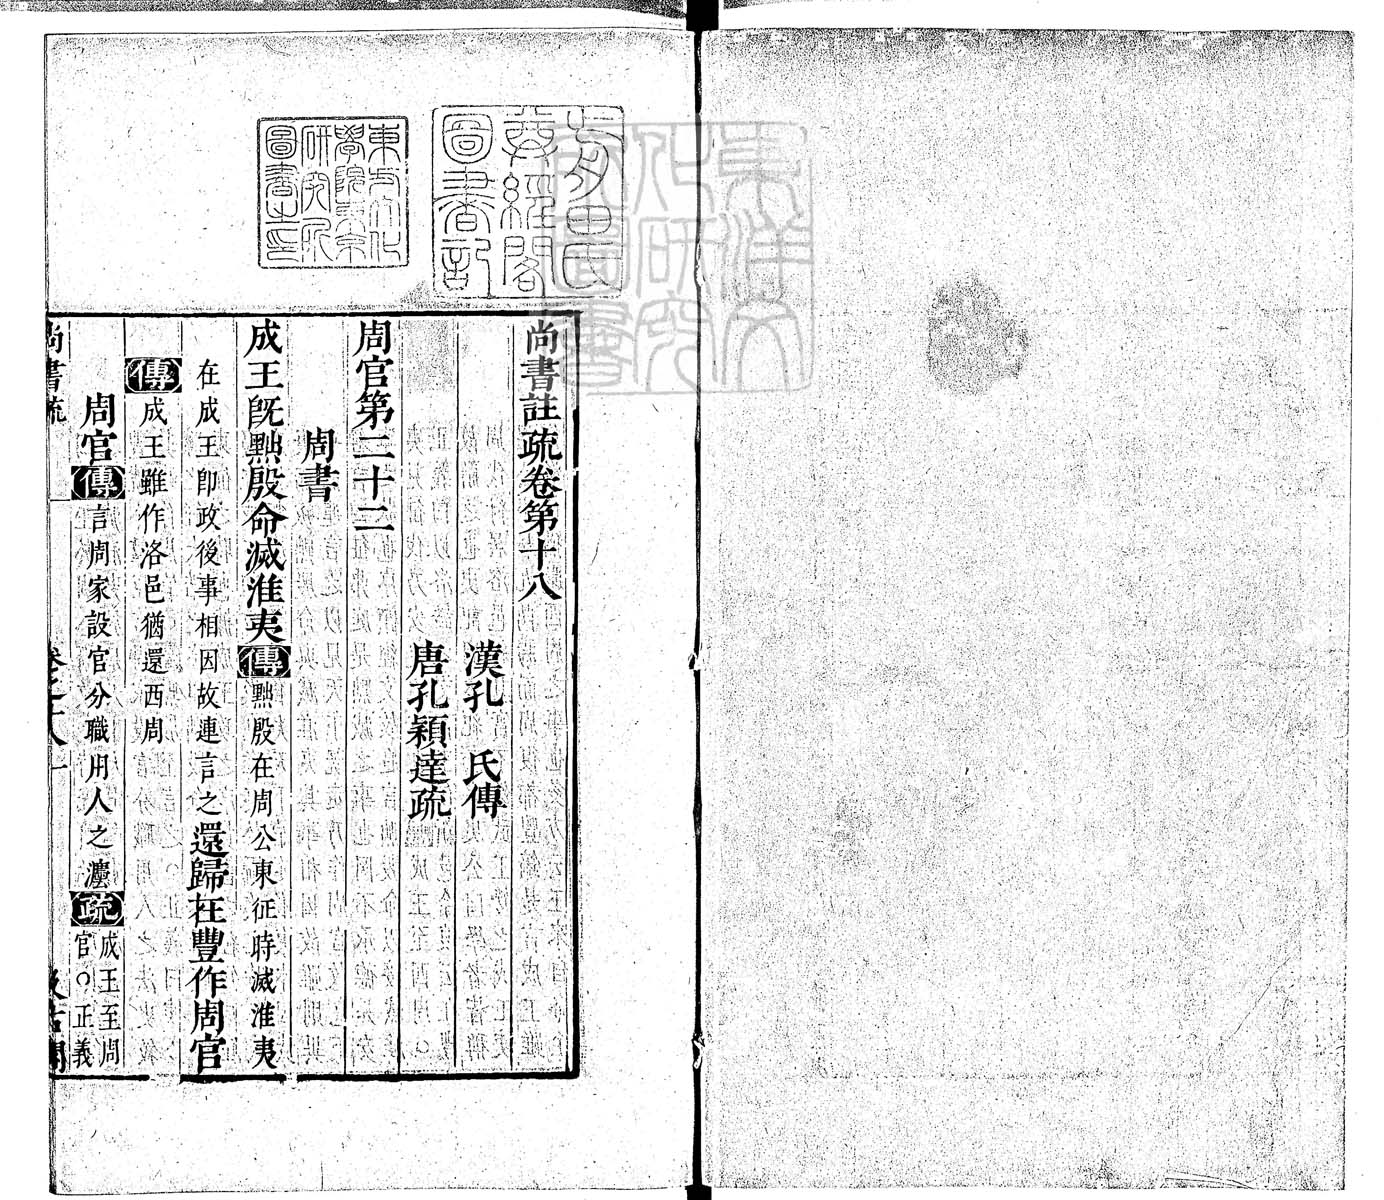 尚書註疏卷第十八
漢孔　氏傳
唐孔穎達疏
周官第二十二
周書
成王旣黜殷命滅淮夷傳黜殷在周公東征時滅淮夷
在成王卽政後事相因故連言之還歸在豐作周官
傳成王雖作洛邑猶還西周
周官傳言周家設官分職用人之灋疏成王至周官○正義
尚書疏
卷之十八　一
汲古閣
東方文化學院東京研究所圖書之印
尊經閣
圖書記
東洋文化研究所圖書